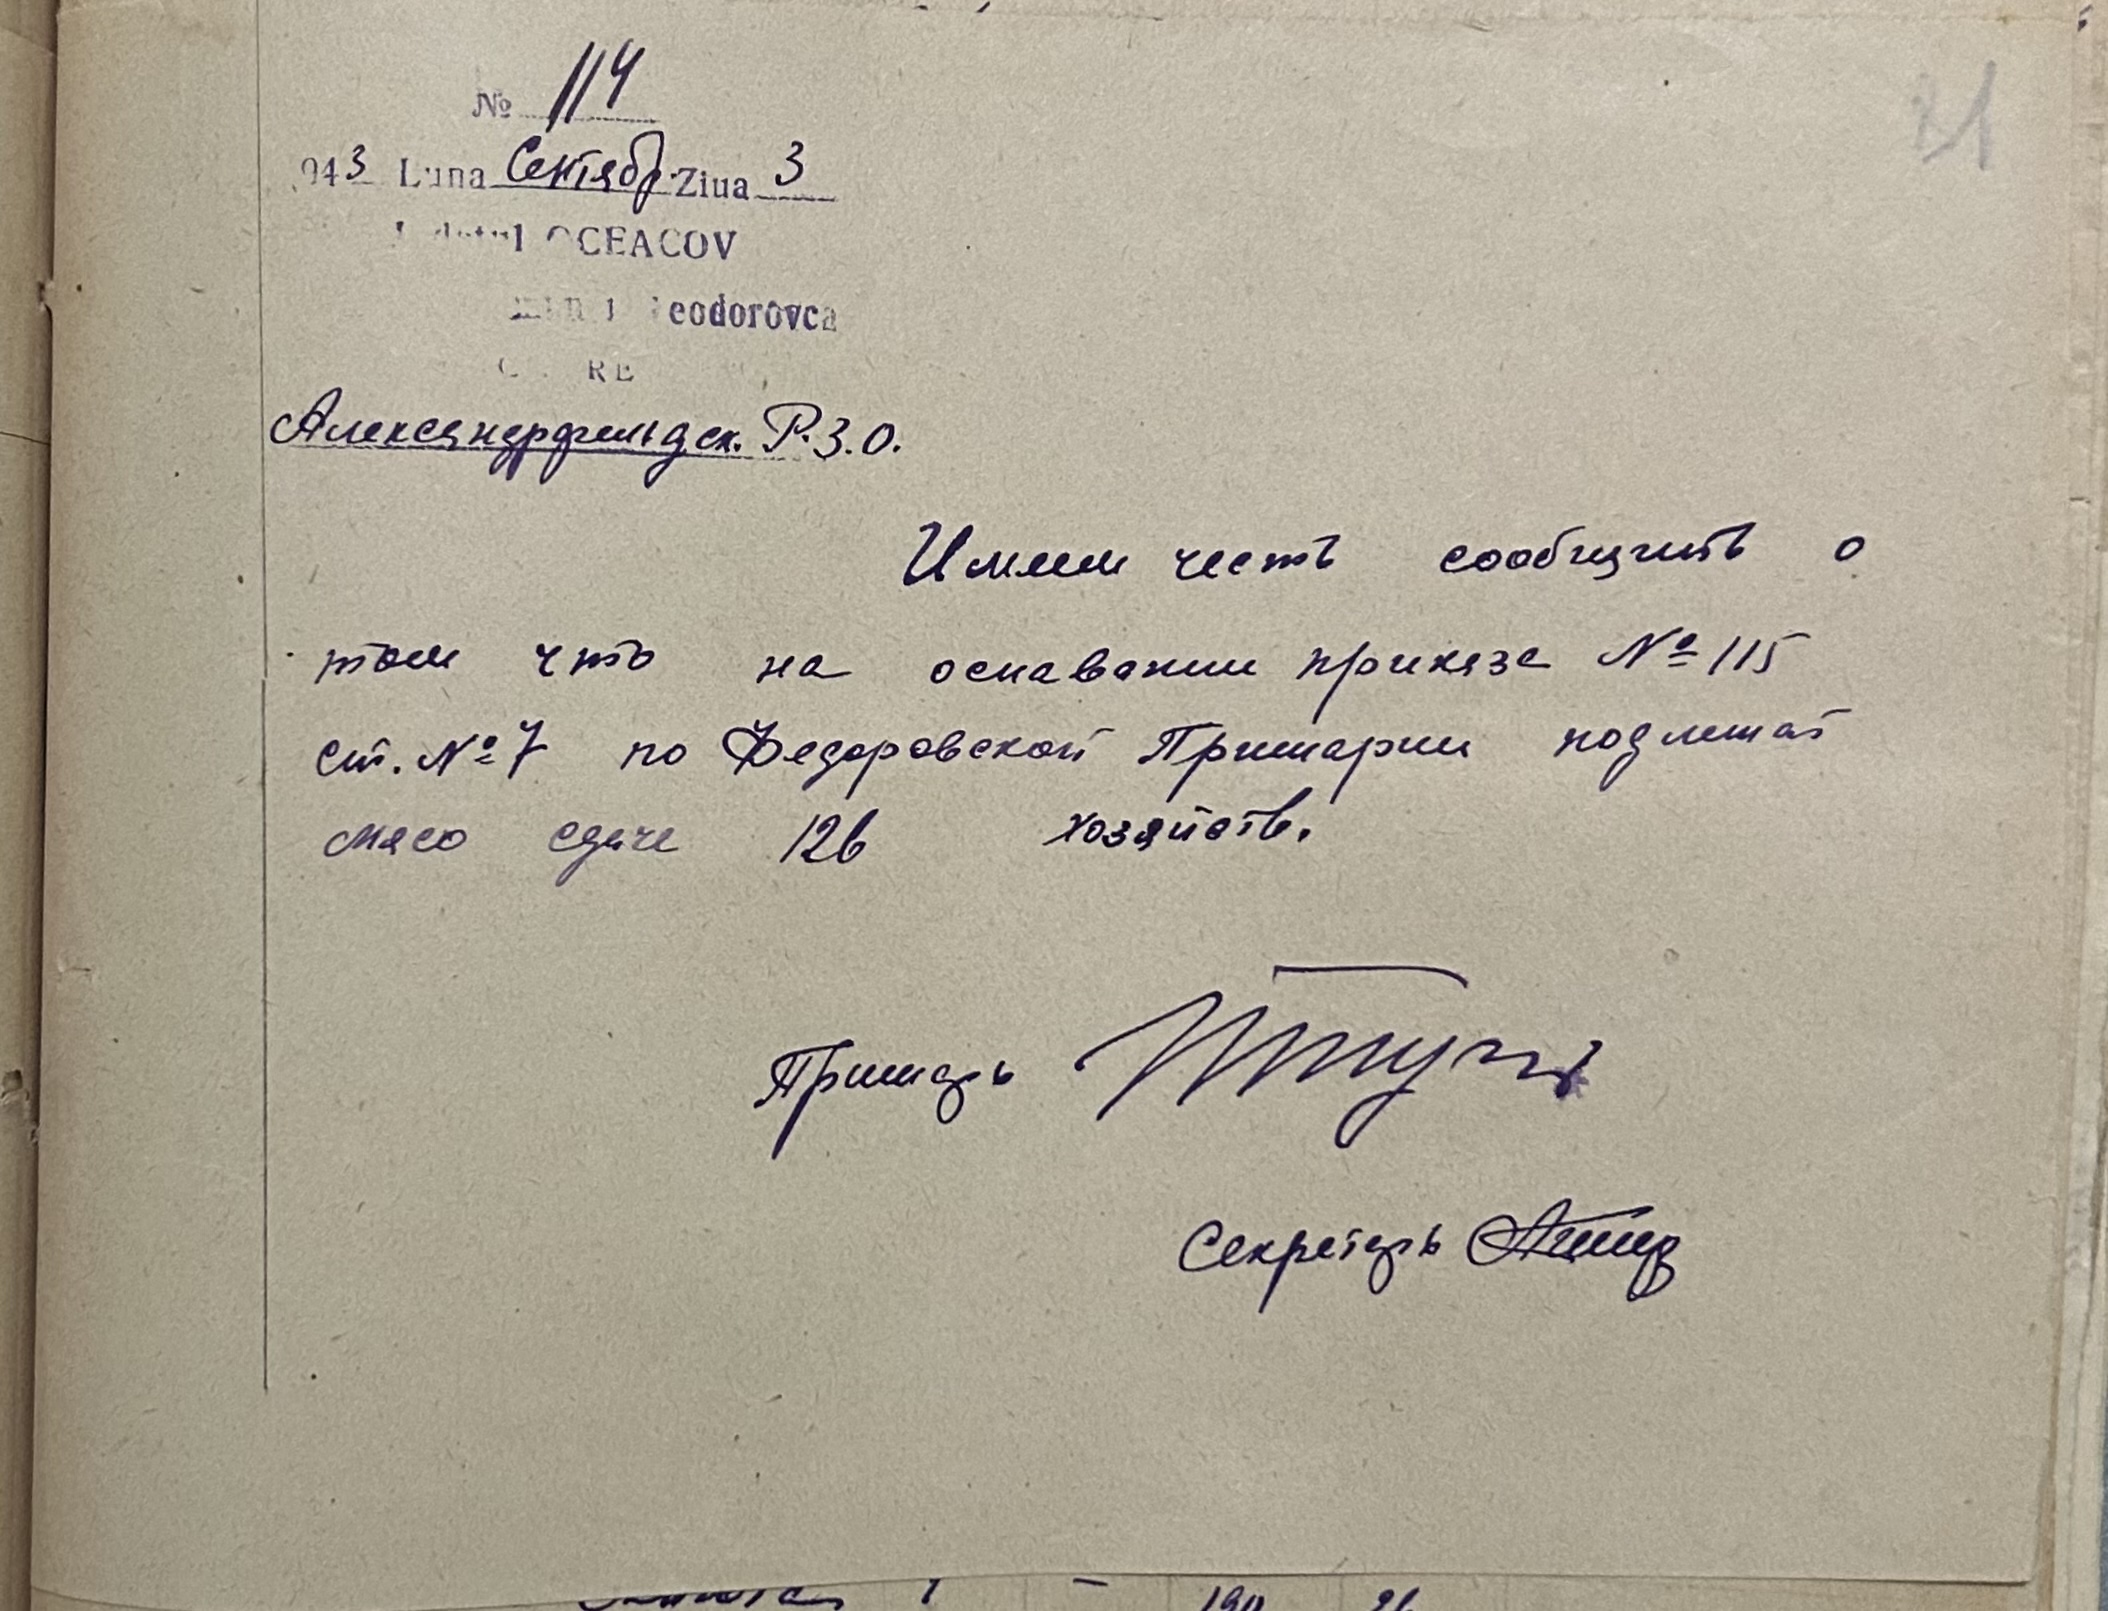 21
№ 114
943 Luna Сентябр Ziua 3
OCEACOV
Teodorovca
Александрфельдск. Р.З.О.
Имеем честь сообщить о
том что на оснавании приказа № 115
ст. № 7 по Федоровской Примарии подлежат
мясо сдаче 126 хозяйств.
Примарь
Секретарь